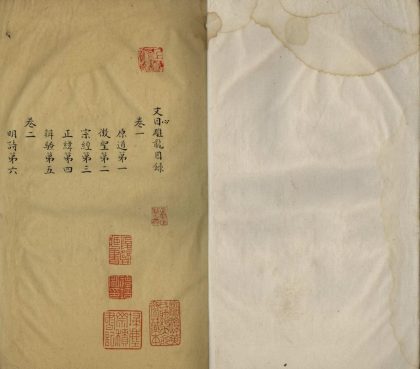 文心雕龍目錄
卷一
原道第一
徵聖第二
宗經第三
正緯第四
辨騷第五
卷二
明詩第六